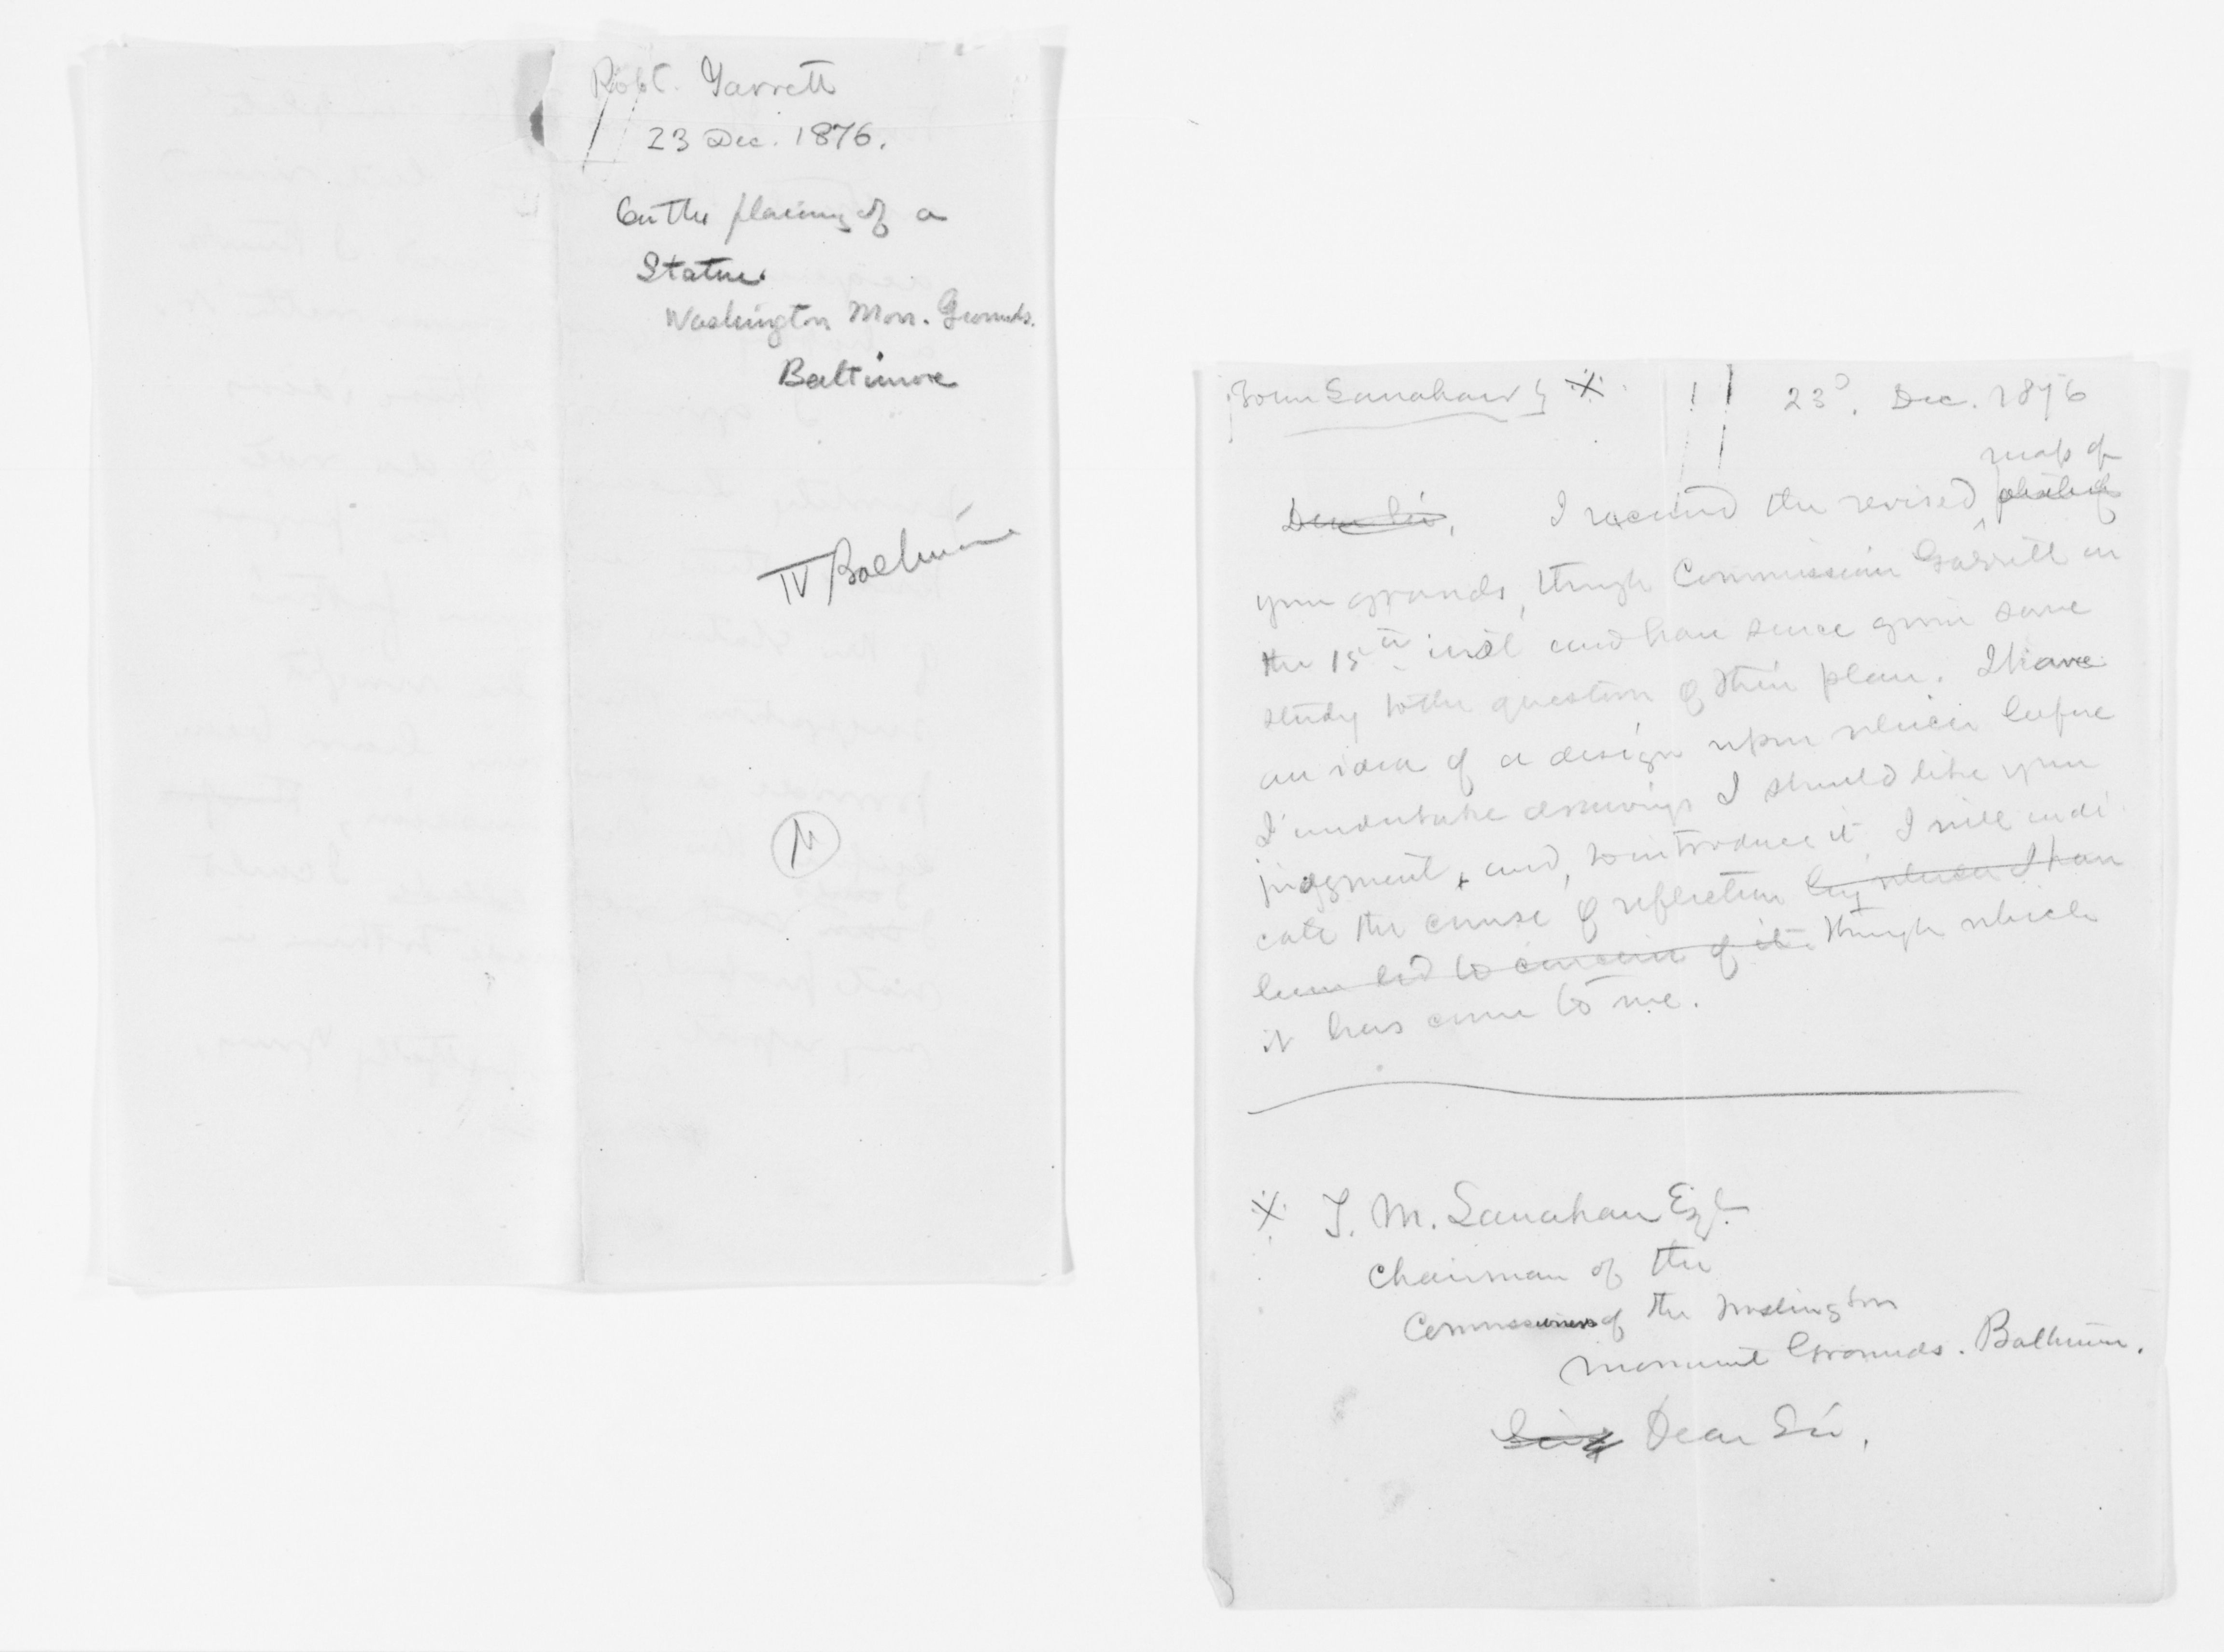 Robt. Garrett
23 Dec. 1876.
On the placing of a
Statue.
Washington Mon. Grounds.
Baltimore
IV Baltimore
Lanahan 23d. Dec. 1876
map of
Dear Sir, I received the revised
your grounds, through Commissioner Garrett on
the 15th inst and have since given some
study to the question of their plan. I have
an idea of a design upon which before
I undertake drawings I should like your
judgment, and, to introduce it, I will indi
cate the course of reflection by which I have
been led to conceive of it. through which
it has come to me.
T. M. Lanahan Esq.
Chairman of the
Commissioners of the Washington
Monument Grounds. Baltimore.
Dear Sir,